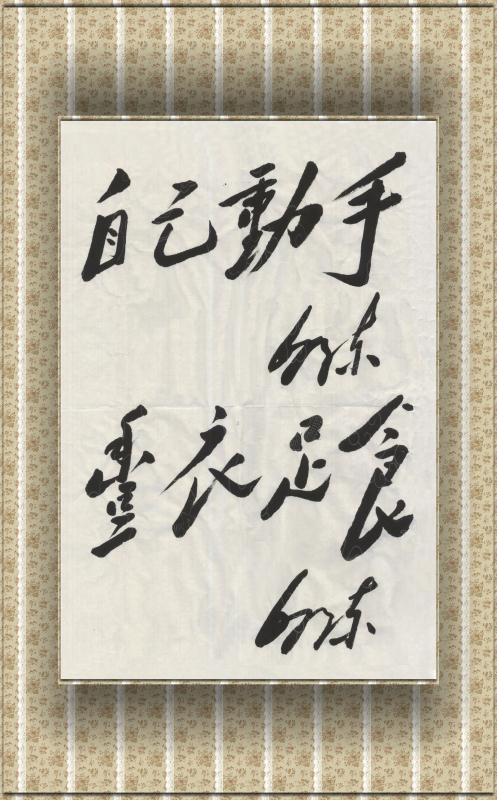 自己動手
豐衣足食